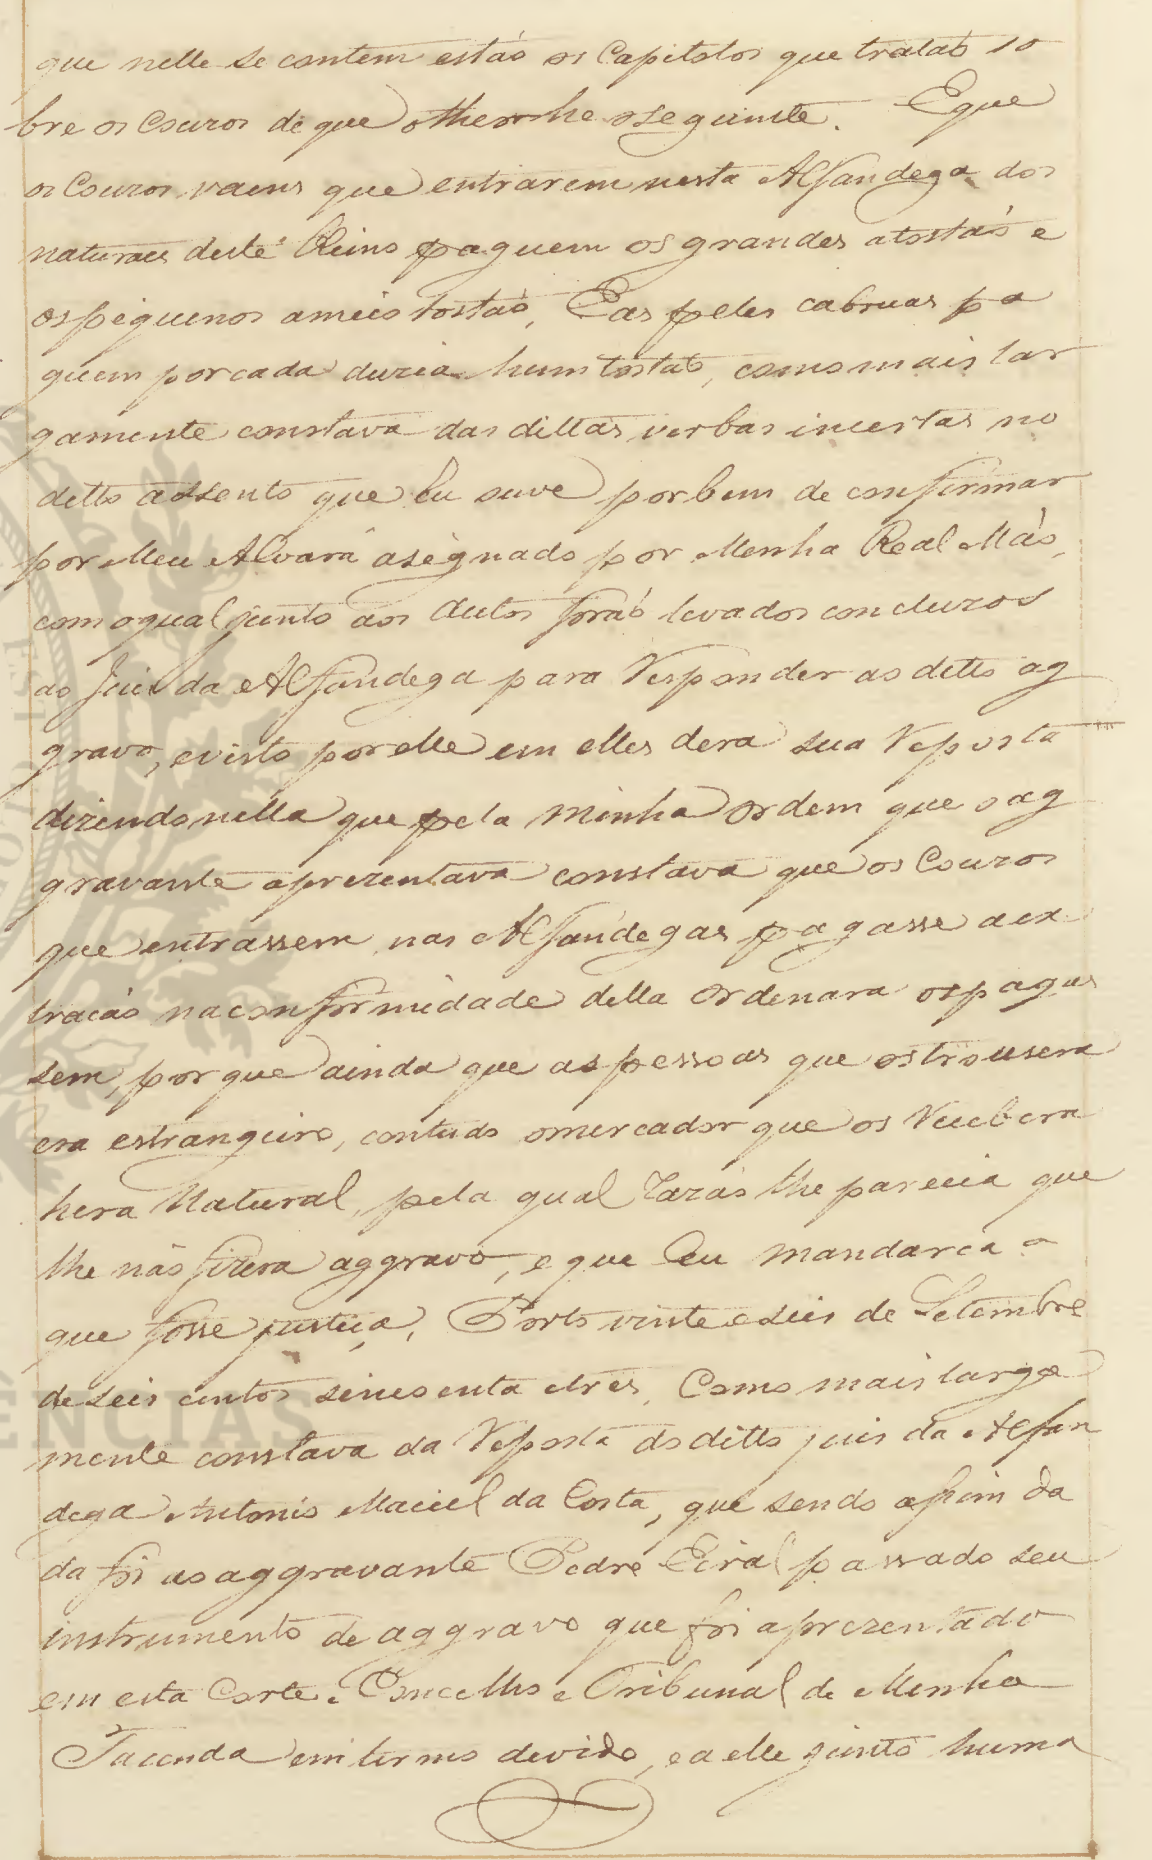 que nelle se contem estáo os Capitolos que tratáo so
bre os Couros de que o theor he o seguinte. E que
os Couros vacuns que entrarem nesta Alfandega dos
naturaes deste Reino paguem os grandes a tostáo e
os piquenos a meio tostáo, E as peles cabruas pa
guem por cada duzia hum tostáo, como mais lar
gamente constava das dittas verbas incertas no
ditto assento que Eu ouve por bem de confirmar
por Meu Alvará asignado por Minha Real Máo,
com o qual junto aos Autos foráo levados concluzos
ao Juis da Alfandega para Responder ao ditto ag
gravo, e visto por elle em elles dera sua Reposta
dizendo nella que pela minha Ordem que o ag
gravante aprezentava constava que os Couros
que entrassem nas Alfandegas pagasse a ex
tracáo na conformidade della Ordenara os pagas
sem, porque ainda que as pessoas que os trousera
era estrangeiro, contudo o mercador que os Recebera
hera Natural, pela qual Razáo lhe parecia que
lhe náo fizera aggravo, e que Eu mandaria o
que fosse justiça, Porto vinte e seis de Setembre
de seis centos sincoenta e tres, Como mais larga
mente constava da Reposta do ditto juis da Alfan
dega Antonio Maciel da Costa, que sendo assim da
da foi ao aggravante Pedre Eiral passado seu
instrumento de aggravo que foi aprezentado
em esta Corte e Concelho e Tribunal de Minha
Facenda em termo devido, e a elle junto huma